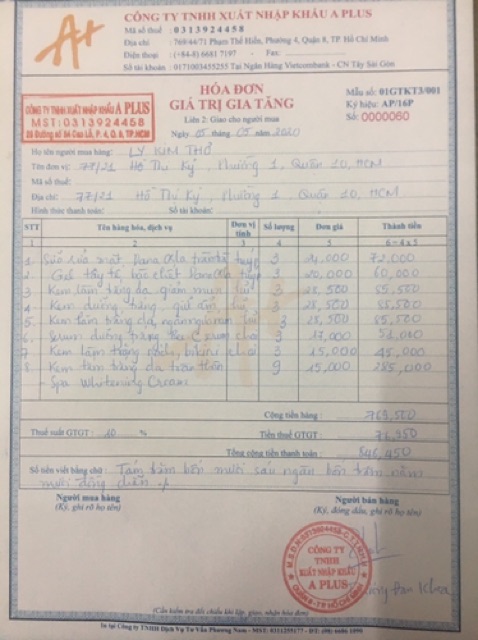 A+
CÔNG TY TNHH XUẤT NHẬP KHẨU A PLUS
Mã số thuế : 0313924458
Địa chỉ : 769/44/71 Phạm Thế Hiển, Phường 4, Quận 8, TP. Hồ Chí Minh
Điện thoại : (+84-8) 6681 7197 - Fax:
Số tài khoản : 0171003455255 Tại Ngân Hàng Vietcombank - CN Tây Sài Gòn
HÓA ĐƠN
GIÁ TRỊ GIA TĂNG
Liên 2: Giao cho người mua
Ngày 05 tháng 05 năm 2020
Mẫu số: 01GTKT3/001
Ký hiệu: AP/16P
Số: 0000060
CÔNG TY TNHH XUẤT NHẬP KHẨU A PLUS
MST: 0313924458
Đường số 84 Cao Lỗ, P. 4, Q. 8, TP.HCM
Họ tên người mua hàng: LÝ KIM THỞ
Tên đơn vị: 77/21 Hồ Thị Kỷ, Phường 1, Quận 10, HCM
Mã số thuế:
Địa chỉ: 77/21 Hồ Thị Kỷ, Phường 1, Quận 10, HCM
Hình thức thanh toán: Số tài khoản:
STT Tên hàng hóa, dịch vụ Đơn vị tính Số lượng Đơn giá Thành tiền
1 2 3 4 5 6=4x5
1 Sữa rửa mặt tuýp 3 24,000 72,000
2 Gel tẩy tế bào chết tuýp 3 20,000 60,000
3 Kem làm trắng da, giảm mụn 3 28,500 85,500
4 Kem dưỡng trắng, giữ ẩm 3 28,500 85,500
5 Kem làm trắng da, 3 28,500 85,500
6 Serum dưỡng trắng chai 3 17,000
7 Kem làm trắng chai 3 15,000 45,000
8 Kem làm trắng da toàn thân 9 15,000
- Spa Whitening Cream
Cộng tiền hàng : 769,500
Thuế suất GTGT: 10 % Tiền thuế GTGT : 76,950
Tổng cộng tiền thanh toán : 846,450
Số tiền viết bằng chữ: Tám trăm bốn mươi sáu ngàn bốn trăm năm
mươi đồng chẵn
Người mua hàng
(Ký, ghi rõ họ tên)
Người bán hàng
(Ký, đóng dấu, ghi rõ họ tên)
M.S.D.N: 0313924458-C.T.T.N.H.H
CÔNG TY
TNHH
XUẤT NHẬP KHẨU
A PLUS
QUẬN 8 - TP HỒ CHÍ MINH
(Cần kiểm tra đối chiếu khi lập, giao, nhận hóa đơn)
In tại Công ty TNHH Dịch Vụ Tư Vấn Phương Nam - MST: 0311255177 - ĐT: (08) 6686 1899